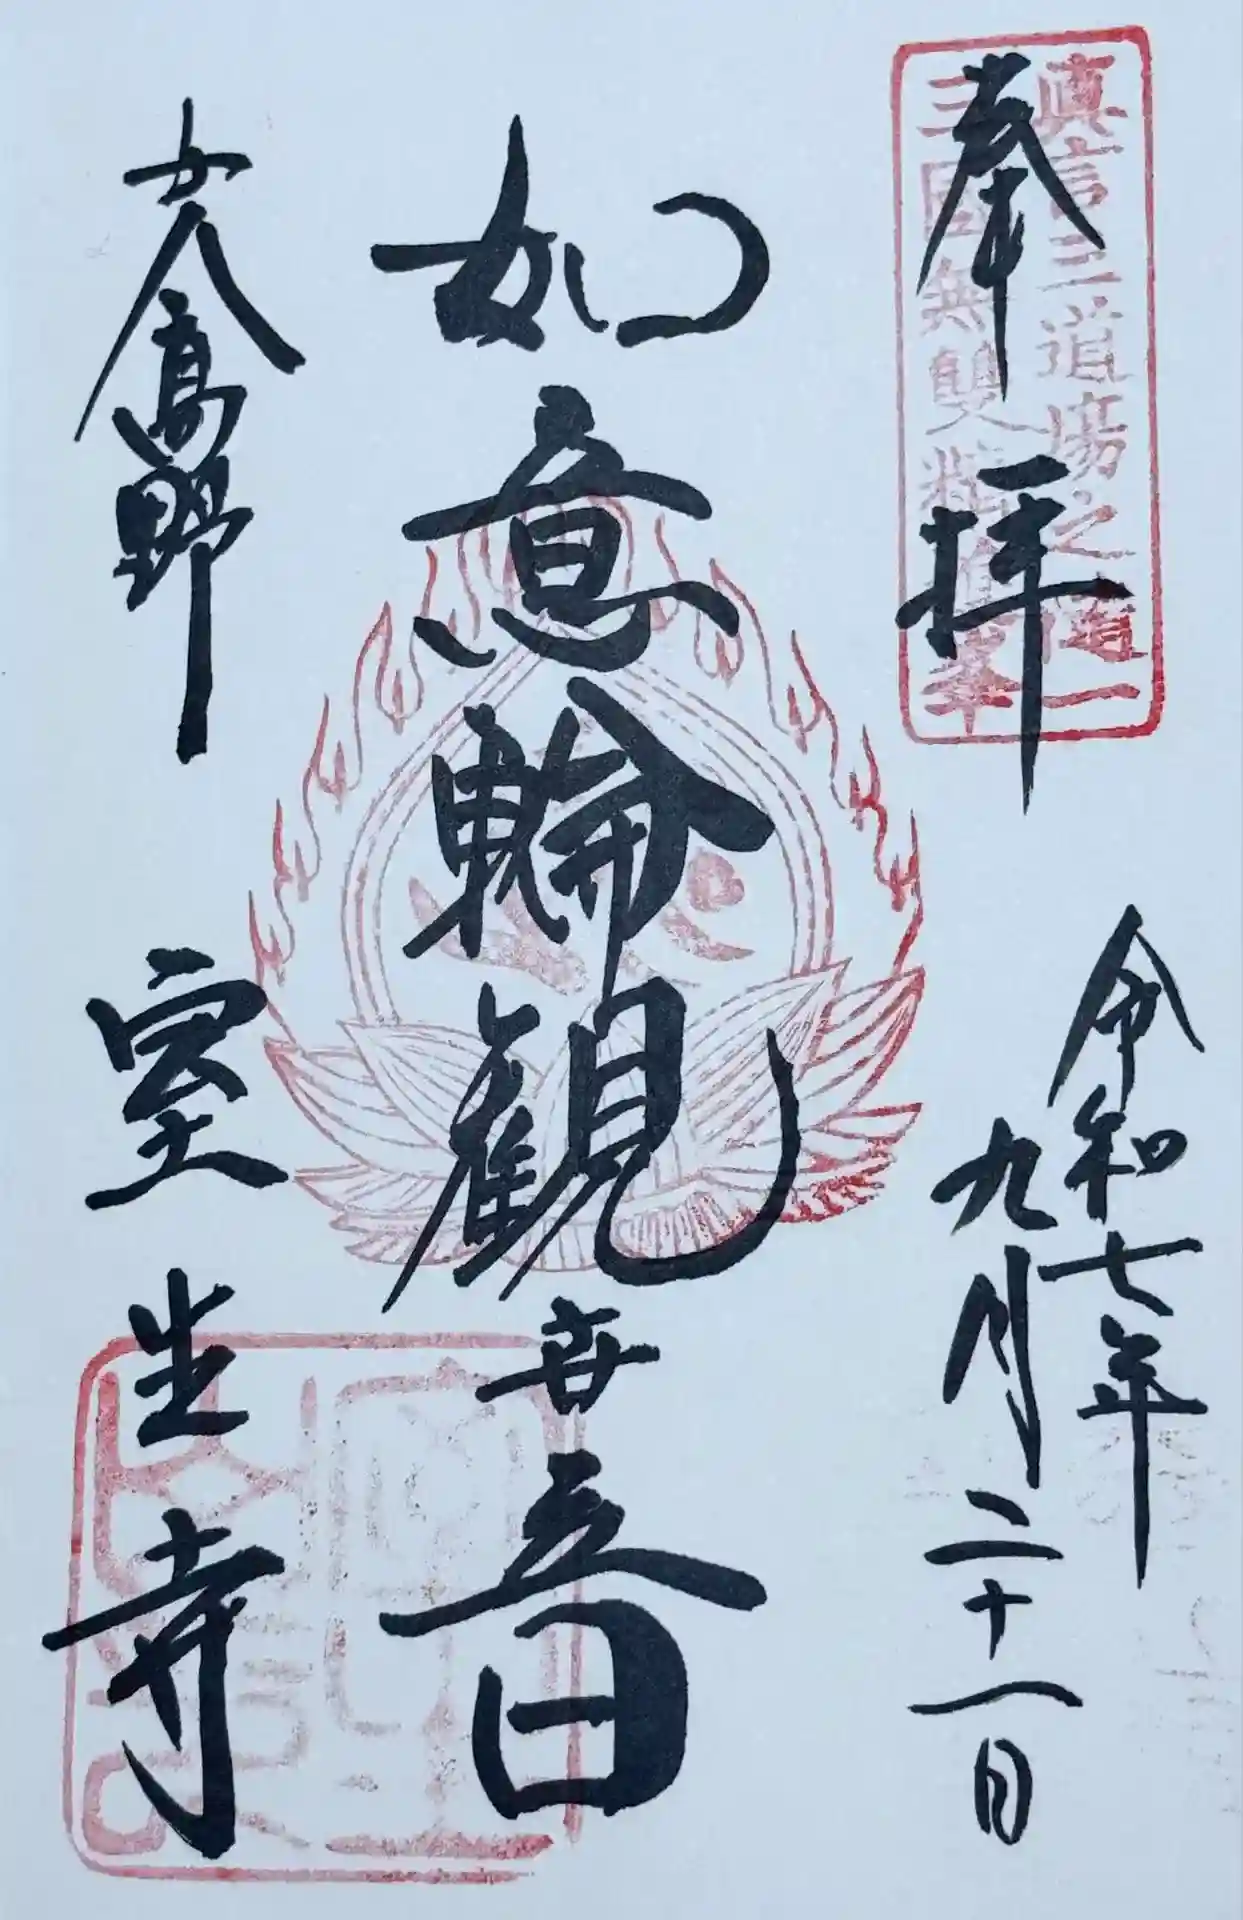 奉拝
真言三道場之随一
三國無雙精進峯
令和七年
九月二十一日
如意輪観世音
女人高野
室生寺